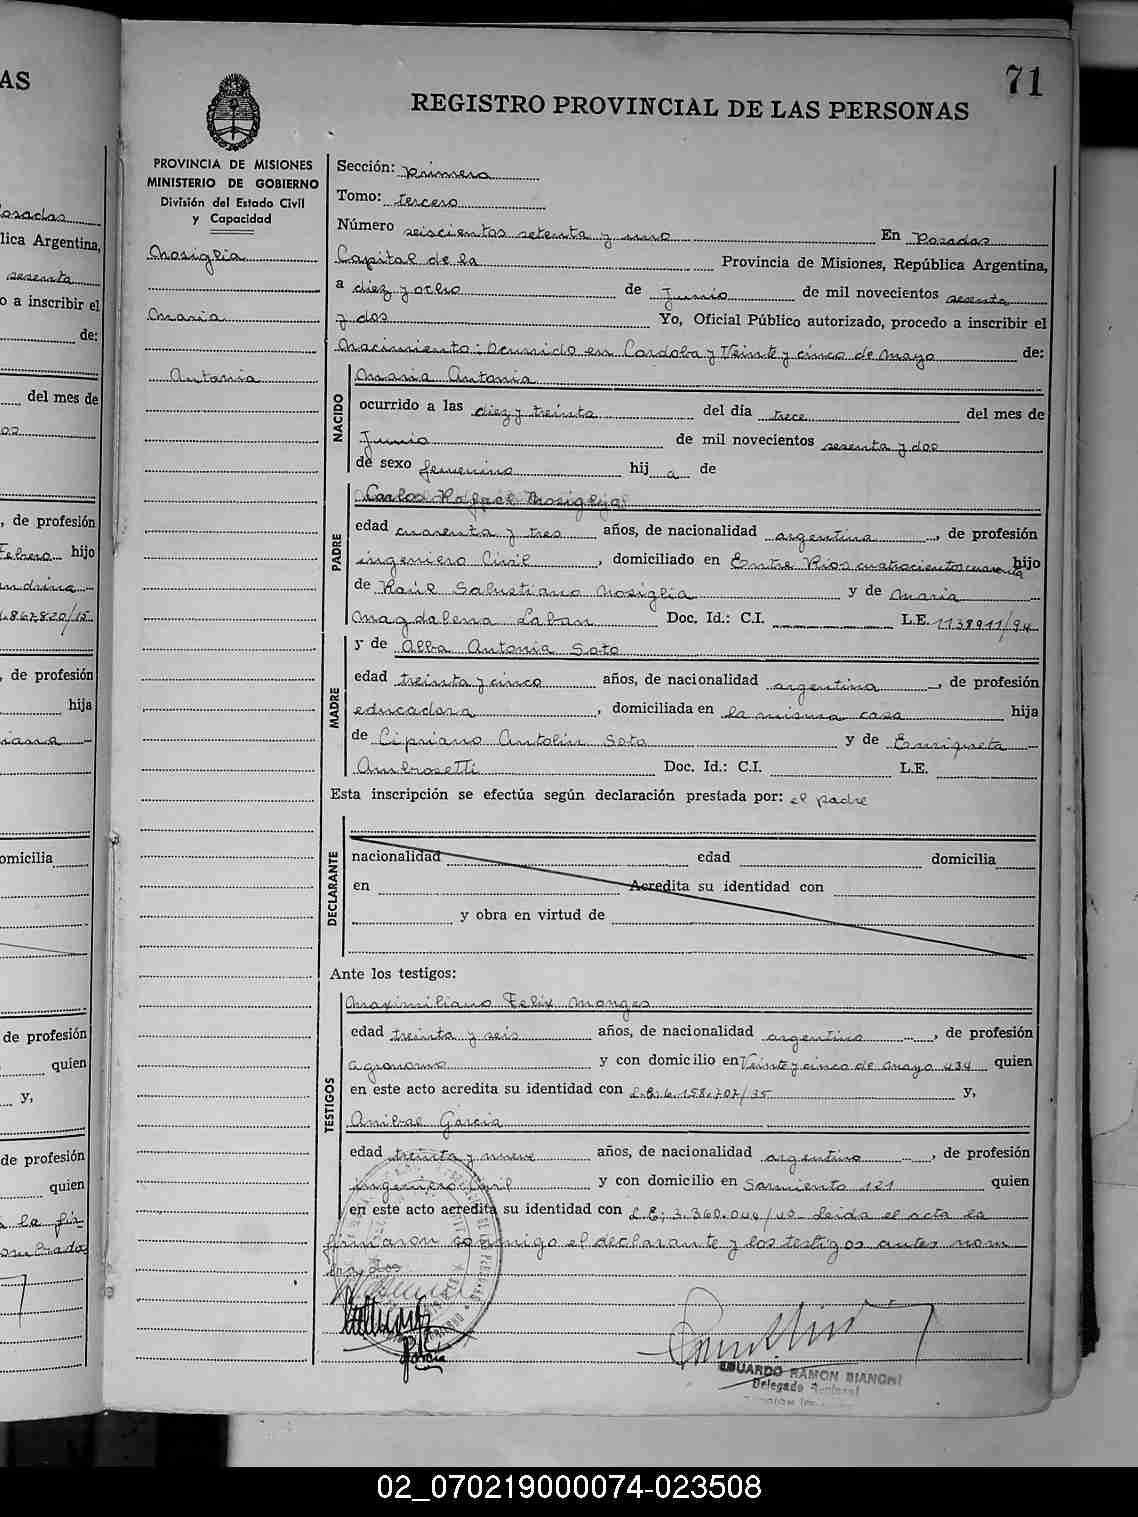 AS
71
REGISTRO PROVINCIAL DE LAS PERSONAS
PROVINCIA DE MISIONES
MINISTERIO DE GOBIERNO
División del Estado Civil
y Capacidad
Nosiglia
Maria
Antonia
Sección: primera
Tomo: tercero
Número seiscientos setenta y uno En Posadas
Capital de la Provincia de Misiones, República Argentina,
a diez y ocho de Junio de mil novecientos sesenta
y dos Yo, Oficial Público autorizado, procedo a inscribir el
Nacimiento: Ocurrido en Cordoba y Veinte y cinco de Mayo de:
NACIDO
Maria Antonia
ocurrido a las diez y treinta del día trece del mes de
Junio de mil novecientos sesenta y dos
de sexo femenino hij a de
PADRE
Carlos Rafael Nosiglia
edad cuarenta y tres años, de nacionalidad argentina, de profesión
ingeniero Civil, domiciliado en Entre Rios cuatrocientos cuarenta hijo
de Raúl Salustiano Nosiglia y de Maria
Magdalena Laban Doc. Id.: C.I. L.E. 1138911/94
MADRE
y de Alba Antonia Soto
edad treinta y cinco años, de nacionalidad argentina, de profesión
educadora, domiciliada en la misma casa hija
de Cipriano Antolin Soto y de Enriqueta
Ambrosetti Doc. Id.: C.I. L.E.
Esta inscripción se efectúa según declaración prestada por: el padre
DECLARANTE
nacionalidad edad domicilia
en Acredita su identidad con
y obra en virtud de
Ante los testigos:
TESTIGOS
Maximiliano Felix Monges
edad treinta y seis años, de nacionalidad argentino, de profesión
agronomo y con domicilio en Veinte y cinco de Mayo 434 quien
en este acto acredita su identidad con L.E; 6.158.707/35 y,
Anibal Garcia
edad treinta y nueve años, de nacionalidad argentino, de profesión
ingeniero Civil y con domicilio en Sarmiento 121 quien
en este acto acredita su identidad con L.E; 3.360.044/40 Leida el acta la
firmaron conmigo el declarante y los testigos antes nom
brados
Garcia
EDUARDO RAMON BIANCHI
Delegado
Posadas
lica Argentina,
sesenta
o a inscribir el
de:
del mes de
, de profesión
Febrero hijo
, de profesión
hija
omicilia
de profesión
quien
y,
de profesión
quien
02_070219000074-023508